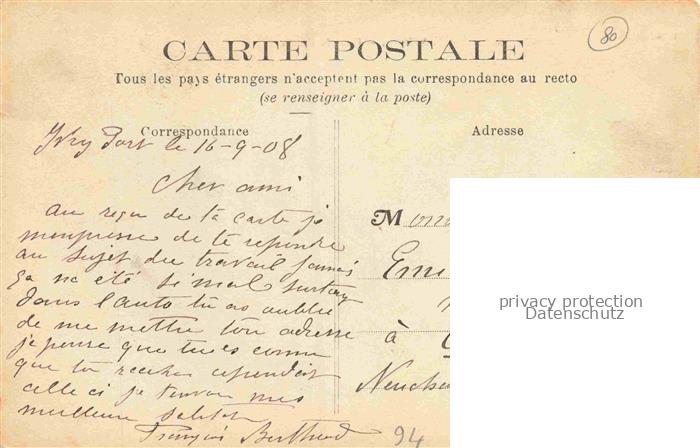 80
CARTE POSTALE
Tous les pays étrangers n'acceptent pas la correspondance au recto
(se renseigner à la poste)
Correspondance
Adresse
Ivry Port le 16-9-08
Cher ami
au reçu de ta carte je
m'empresse de te repondre
au sujet du travail jamais
ça na été si mal surtout
dans l'auto tu as oublié
de me mettre ton adresse
je pense que tu es connu
que tu cependant
celle ci je t'envoie mes
meilleure
François
M
Emi
à
94
privacy protection
Datenschutz